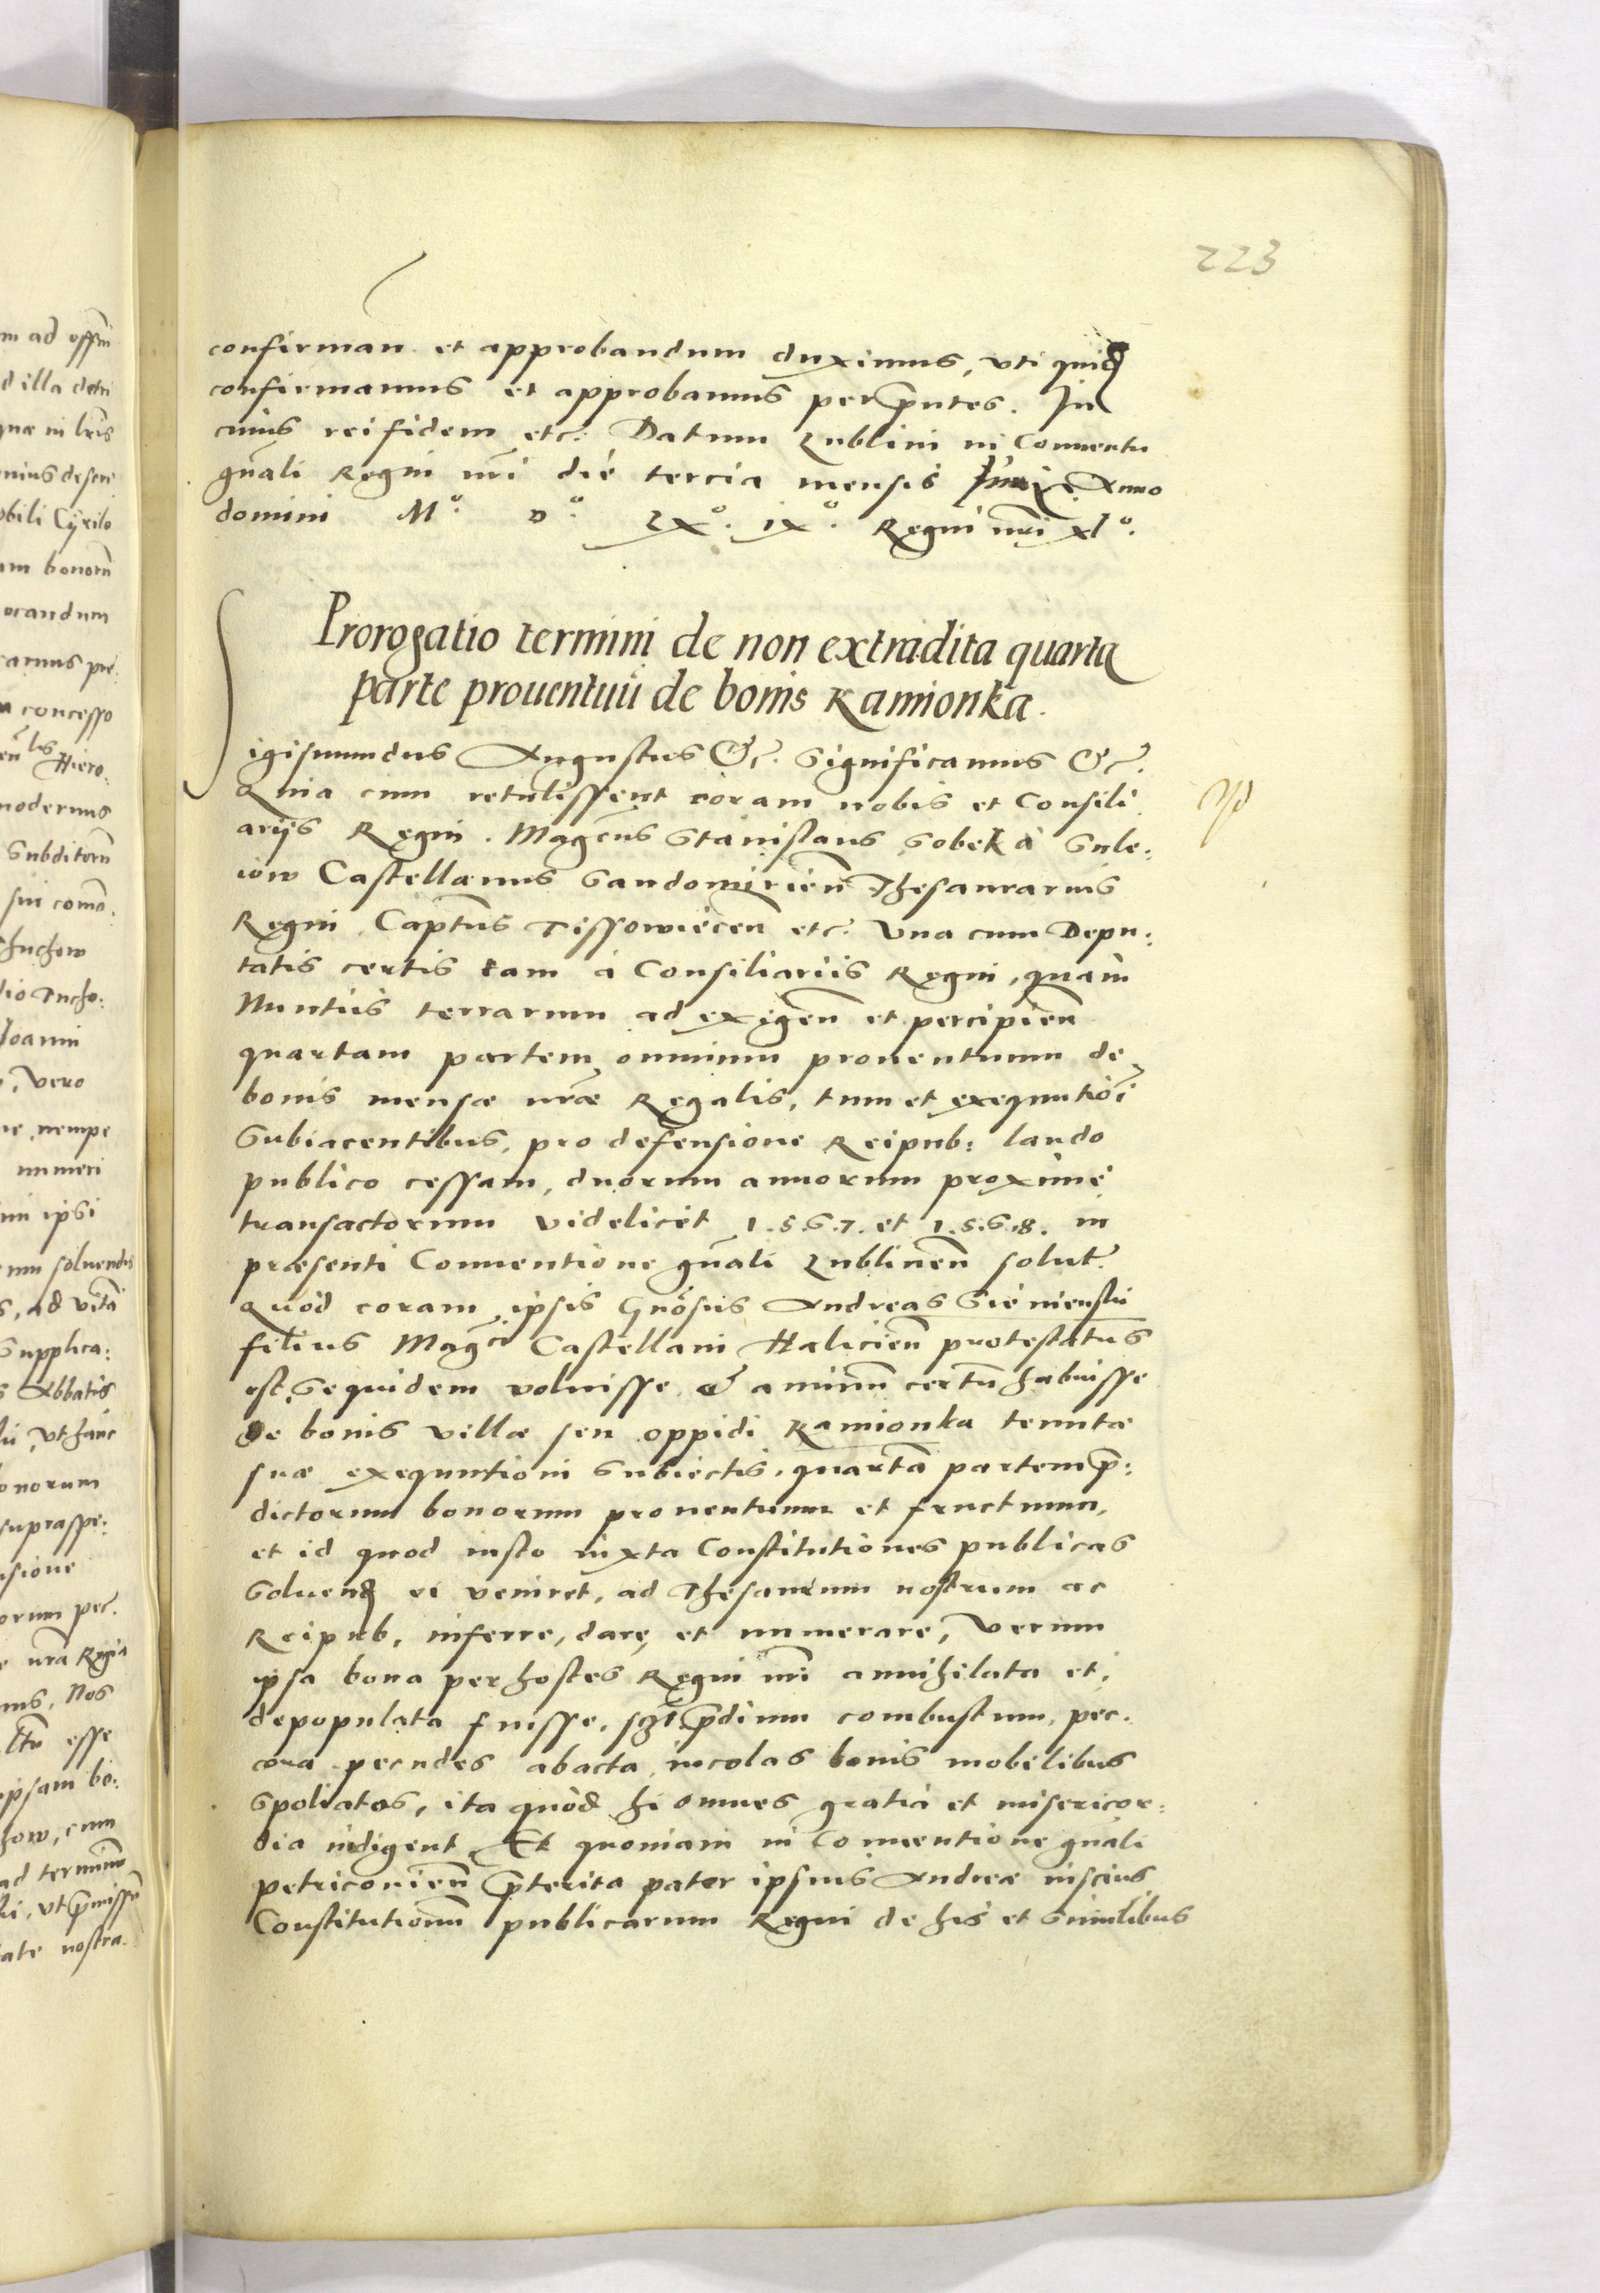 223
confirman et approbandum duximus, vti quidē
confirmamus et approbamus per p̄ntes. In
cuius rei fidem etc. Datum Lublini in Conuentu
gn̄ali Regni nr̄i die tercia mensis Anno
domini Mº Dº LXº. IXº. Regni nr̄i xlº.
Prorogatio termini de non extradita quarta
parte prouentuū de bonis Kamionka.
Sigismundus Augustus &c. Significamus &c.
Quia cum retulissent coram nobis et Consili
arijs Regni. Magc̄us Stanislaus Sobek à Sule:
iow Castellanus Sandomirien̄ Thesaurarius
Regni, Capt̄us Tissowiecen̄ etc. Vna cum Depu:
tatis certis tam à Consiliariis Regni, quam
Nuntiis terrarum ad exigen̄ et percipien̄
quartam partem omnium prouentuum de
bonis mensæ nr̄æ Regalis, tum et exequutiōi
Subiacentibus, pro defensione Reipub: laudo
publico cessam, duorum annorum proximè
transactorum videlicet 1.5.6.7. et 1.5.6.8. in
præsenti Conuentione gn̄ali Lublinen̄ solut̄
Quod coram ipsis Gn̄osus Andreas Siemienski
filius Mag̃ci Castellani Halicien̄ protestatus
est, Sequidem voluisse & animū certū habuisse
De bonis villæ seu oppidi Kamionka tenutæ
suæ exequutioni Subiectis, quartā partem p̄:
dictorum bonorum prouentuum et fructuum,
et id quod iusto iuxta Constitutiones publicas
Soluend ei veniret, ad Thesaurum nostrum ac
Reipub, inferre, dare et numerare, Verum
ipsa bona per hostes Regni nr̄i annihilata et
depopulata fuisse, p̄dium combustum, pec:
cora pecudes abacta, incolas bonis mobilibus
Spoliatos, ita quòd hi omnes gratia et misericor:
dia indigent. Et quoniam in Conuentione gn̄ali
Petriconien̄ p̄terita pater ipsius Andreæ inscius
Constitutionū publicarum Regni de his et Similibus